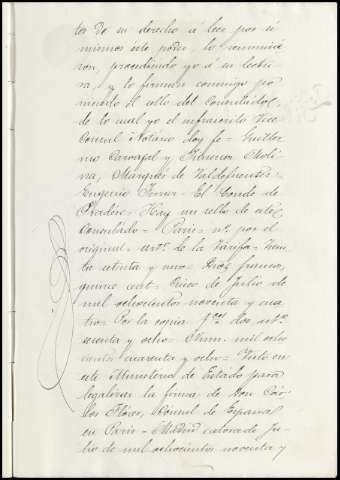 tos de su derecho á leer por sí
mismos este poder, lo renunciaron
ron, procediendo yo á su lectu-
ra, y lo firman conmigo po-
niendo el sello del Consulado,
de lo cual yo el infrascrito Vice
Consul Notario doy fe = Guiller
mo Carvajal y Gutierrez Moli
na, Marqués de Valdefuentes =
Eugenio Ferrer = El Conde de
Hay un sello de este
Consulado = Paris = nº por el
original artº de la Tarifa = trein
ta setenta y uno = tros francos,
quince cent = Cinco de Julio de
mil ochocientos noventa y cua
tro = Por la copia dos artº
sesenta y ocho = Num. mil ocho
cientos cuarenta y ocho = Visto en
este Ministerio de Estado para
legalizar la firma de Don Cár-
los Flórez, Cónsul de España
en Paris = Madrid catorce de Ju-
lio de mil ochocientos noventa y